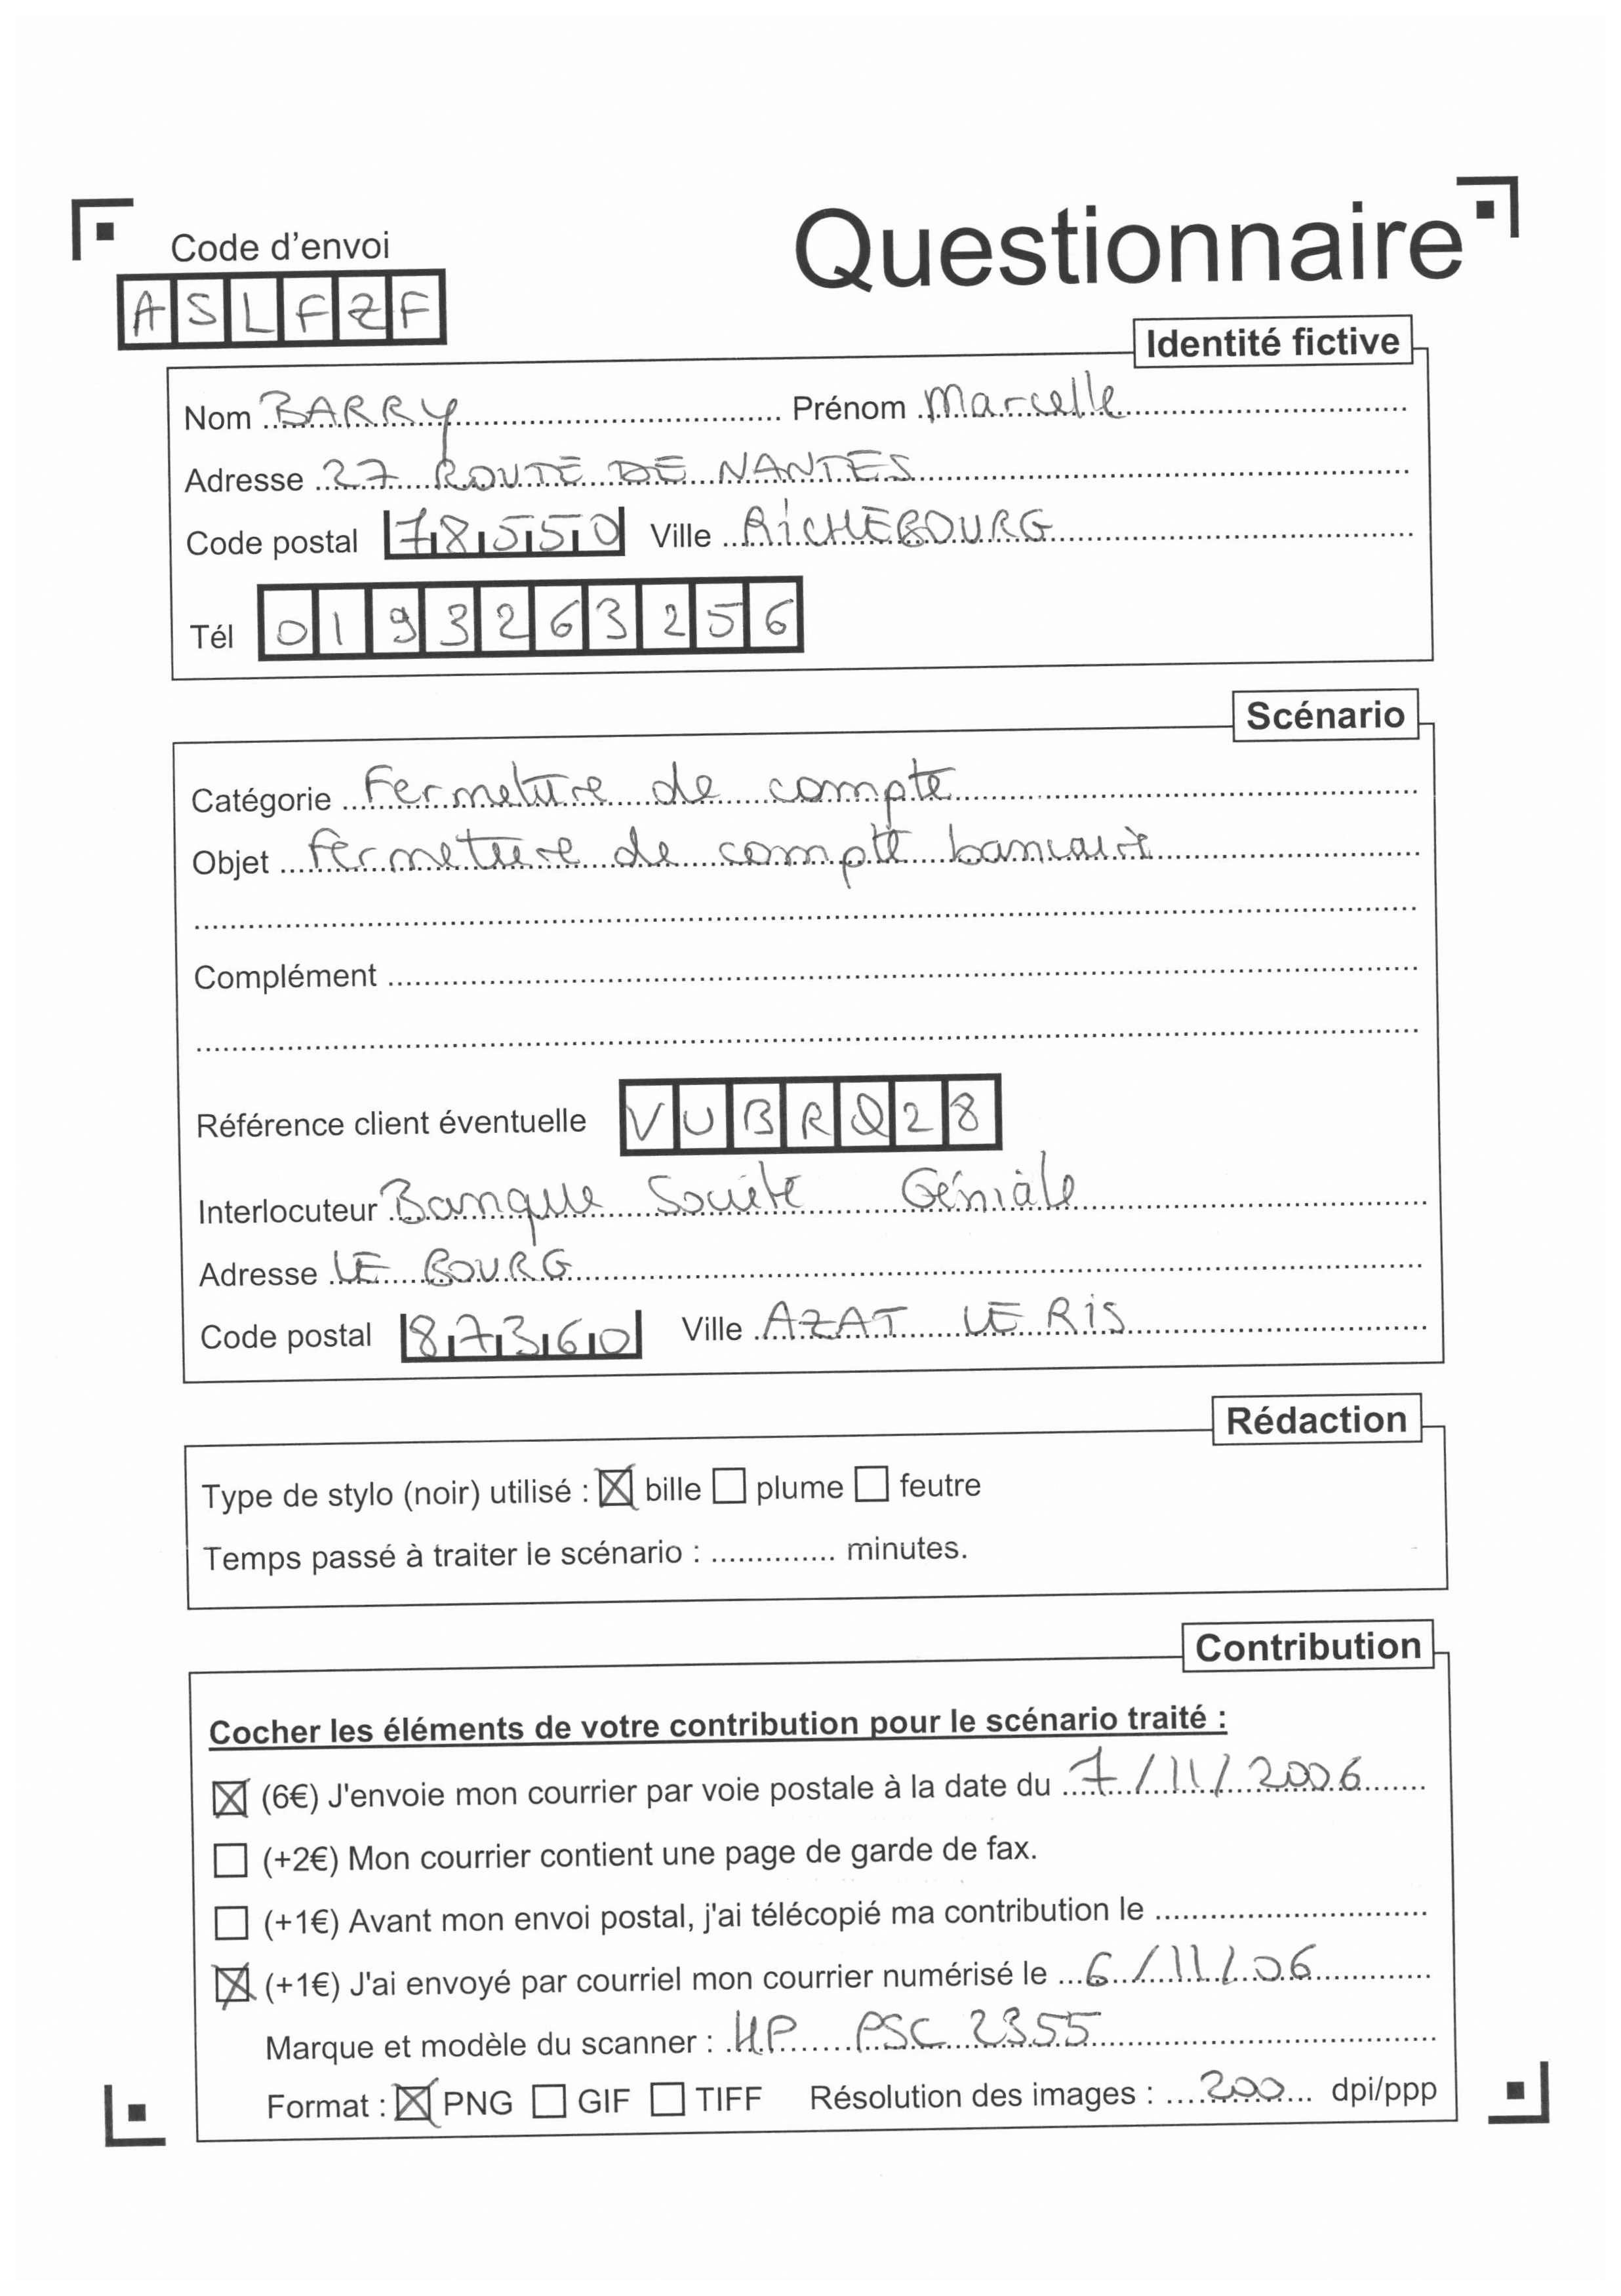 Code d'envoi
Questionnaire
ASLFZF
Identité fictive
Nom BARRY Prénom Marcelle
Adresse 27 ROUTE DE NANTES
Code postal 78550 Ville RiCHEBOURG
Tél 0193263256
Scénario
Catégorie Fermeture de compte
Objet fermeture de compte bancaire
Complément
Référence client éventuelle VUBRQ28
Interlocuteur Banque Société Géniale
Adresse LE BOURG
Code postal 87360 Ville AZAT LE RiS
Rédaction
Type de stylo (noir) utilisé : ☒ bille ☐ plume ☐ feutre
Temps passé à traiter le scénario : .............. minutes.
Contribution
Cocher les éléments de votre contribution pour le scénario traité :
☒ (6€) J'envoie mon courrier par voie postale à la date du 7/11/2006
☐ (+2€) Mon courrier contient une page de garde de fax.
☐ (+1€) Avant mon envoi postal, j'ai télécopié ma contribution le
☒ (+1€) J'ai envoyé par courriel mon courrier numérisé le 6/11/06
Marque et modèle du scanner : HP PSC 2355
Format : ☒ PNG ☐ GIF ☐ TIFF Résolution des images : 200 dpi/ppp